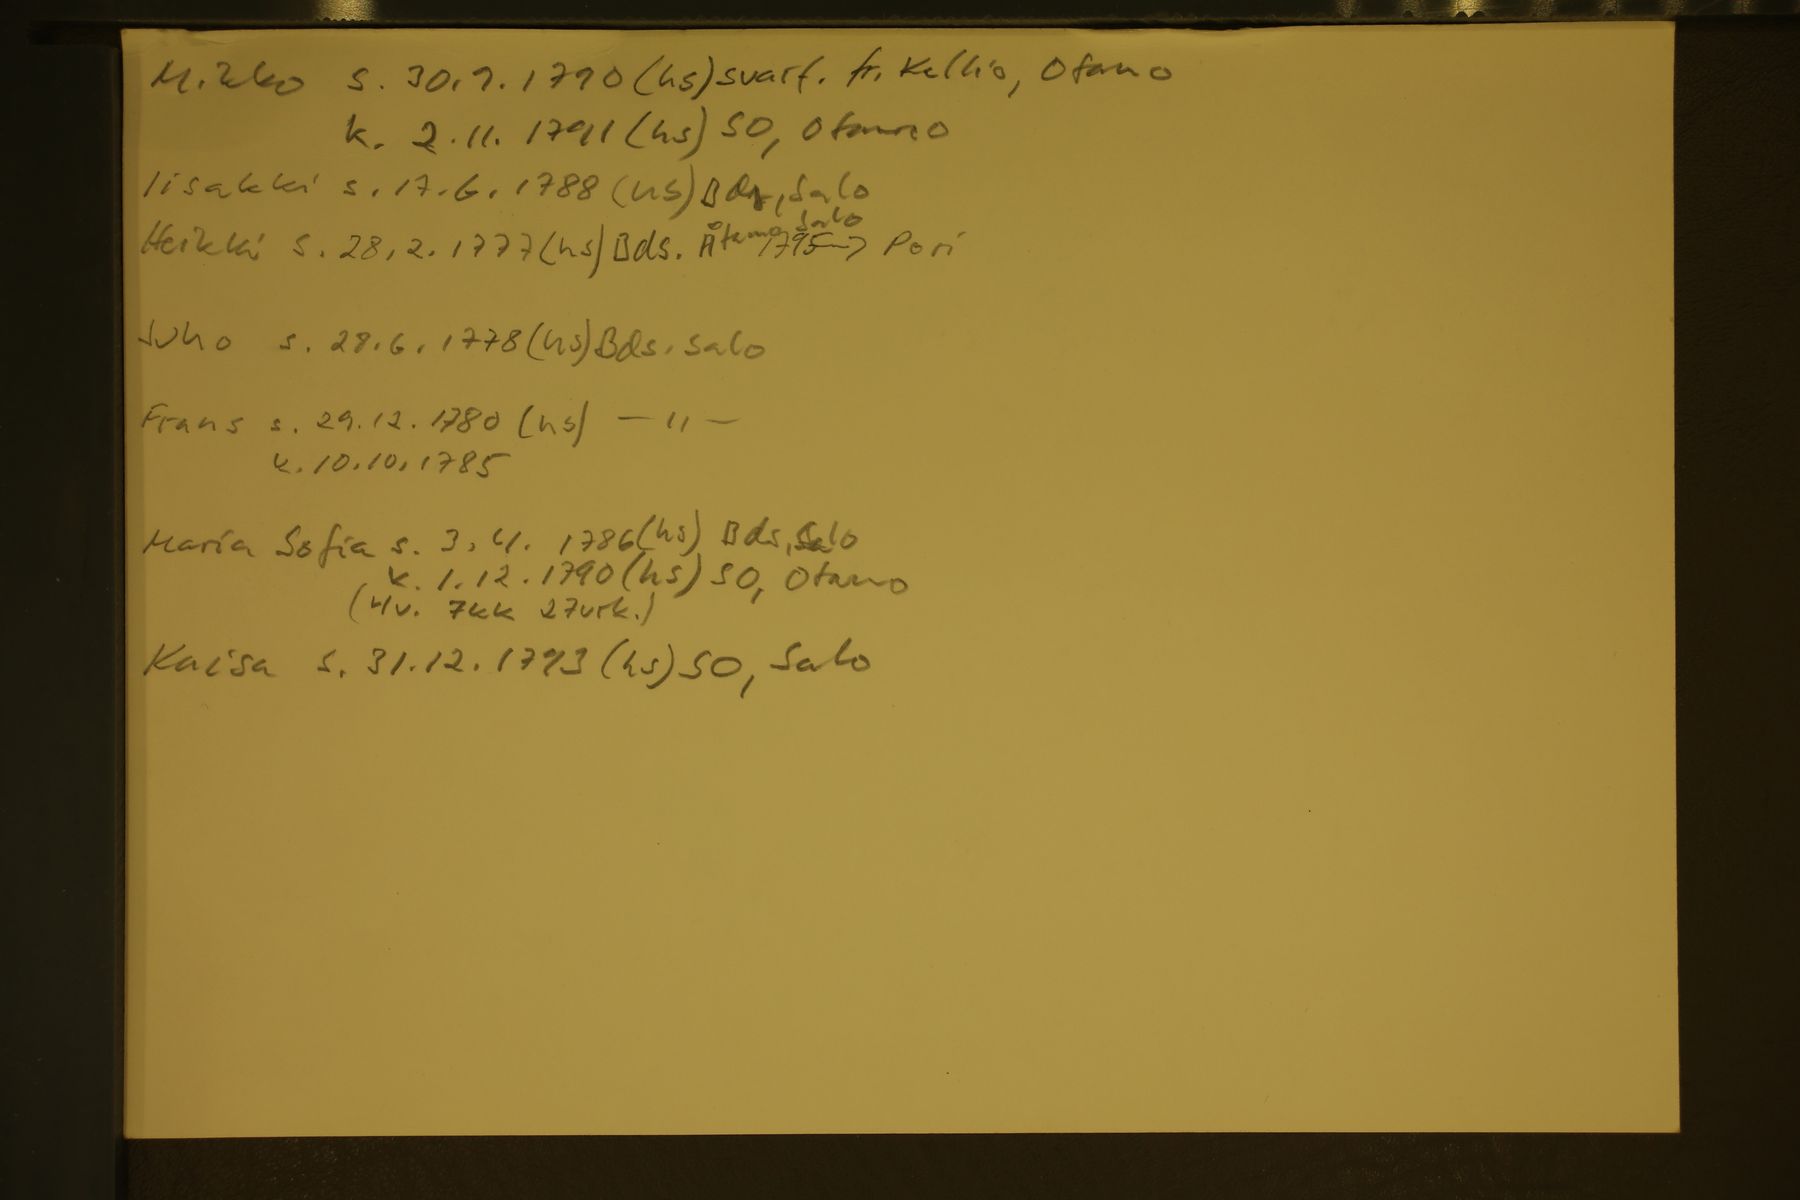 Mikko s. 30.9.1790 (hs) svarf. fr. Kellio, Otamo
k. 2.11.1791 (hs) SO, Otamo
Iisakki s. 17.6.1788 (hs) Bds, Salo
Salo
Heikki s. 28.2.1777 (hs) Bds. Åtamo 1795 → Pori
Juho s. 28.6.1778 (hs) Bds. Salo
Frans s. 29.12.1780 (hs) — " —
k. 10.10.1785
Maria Sofia s. 3.4. 1786 (hs) Bds, Salo
k. 1.12.1790 (hs) SO, Otamo
(4v. 7kk 27vrk.)
Kaisa s. 31.12.1793 (hs) SO, Salo